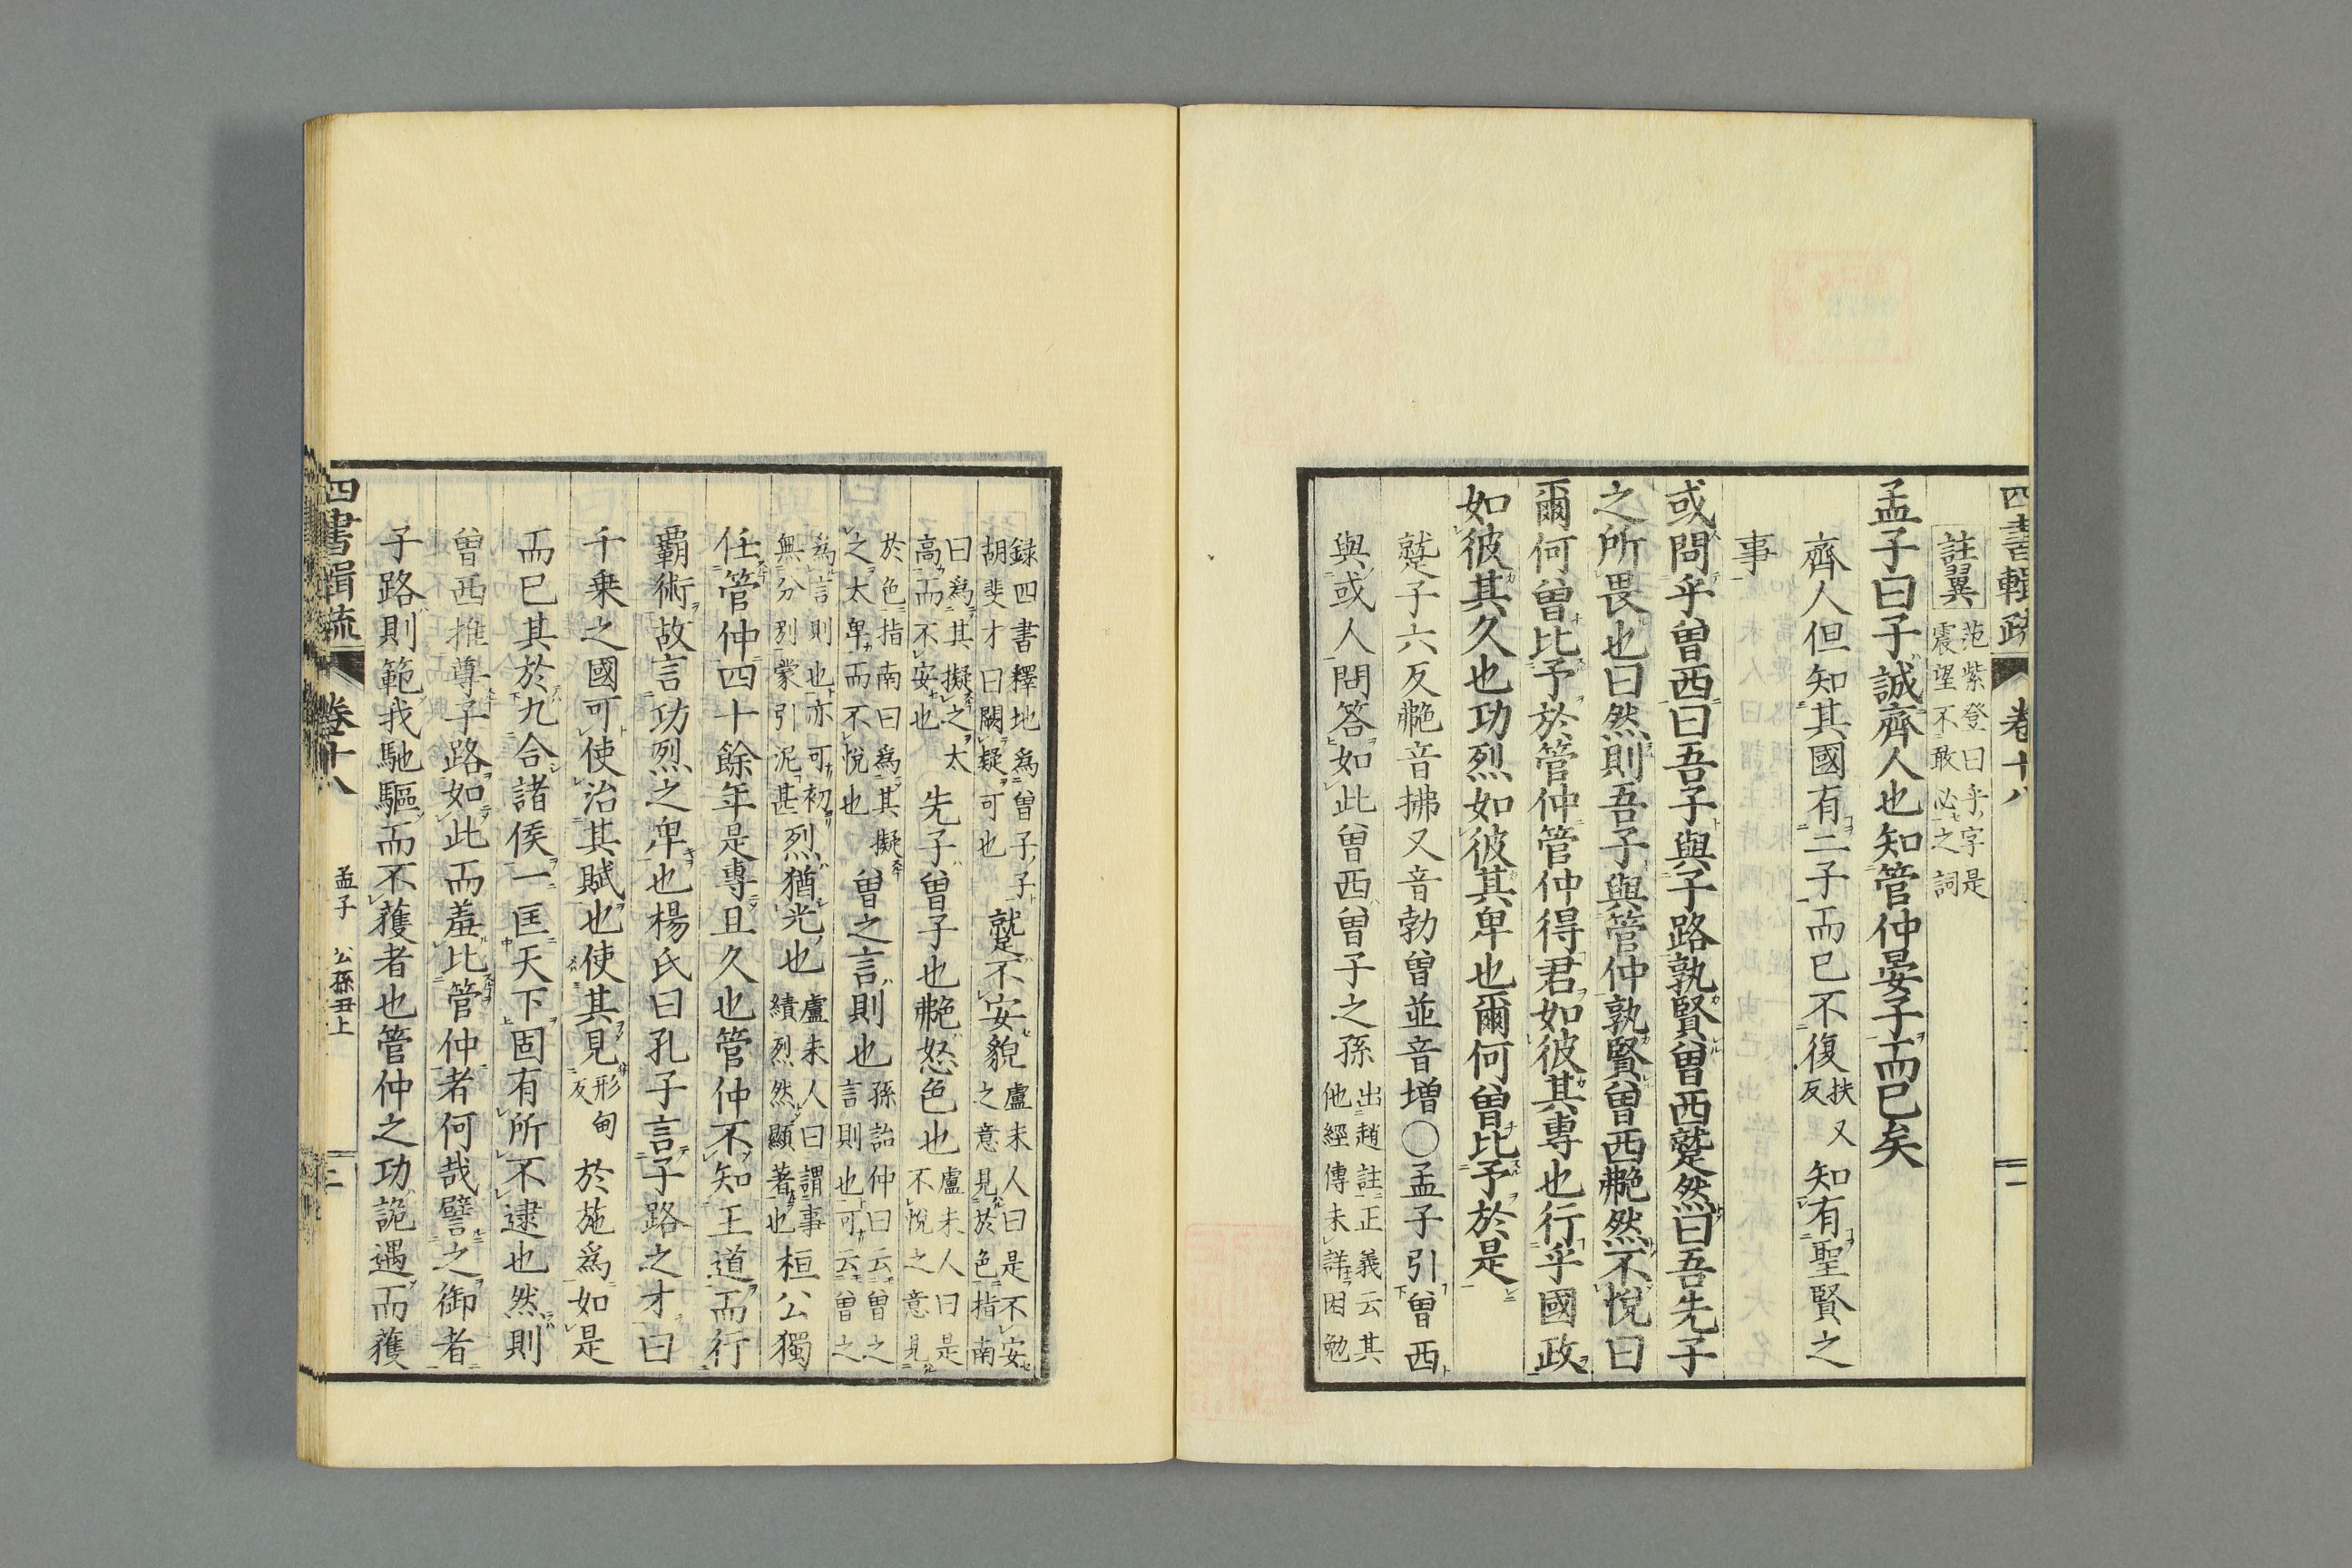 四書輯疏 卷十八 二
註翼 范紫登曰乎字是
震望不敢必之詞
孟子曰子誠齊人也知管仲晏子而已矣
齊人但知其國有二子而已不復扶又反知有聖賢之
事
或問乎曾西曰吾子與子路孰賢曾西蹵然曰吾先子
之所畏也曰然則吾子與管仲孰賢曾西艴然不悅曰
爾何曾比予於管仲管仲得君如彼其專也行乎國政
如彼其久也功烈如彼其卑也爾何曾比予於是
蹵子六反艴音拂又音勃曾並音增○孟子引曾西
與或人問答如此曾西曾子之孫 出趙註正義云其
他經傳未詳困勉
録四書釋地爲曾子子
胡斐才曰闕疑可也
蹵不安貌 盧未人曰是不安
之意見於色指南
曰爲其擬之太
高而不安也
先子曾子也艴怒色也 盧未人曰是
不悅之意見
於色指南曰爲其擬
之太卑而不悅也
曾之言則也 孫詒仲曰云曾之
言則也可云曾之
爲言則也亦可初
無分別蒙引泥甚
烈猶光也 盧未人曰謂事
績烈然顯著也
桓公獨
任管仲四十餘年是專且久也管仲不知王道而行
霸術故言功烈之卑也楊氏曰孔子言子路之才曰
千乗之國可使治其賦也使其見形甸反於施爲如是
而已其於九合諸侯一匡天下固有所不逮也然則
曾西推尊子路如此而羞比管仲者何哉譬之御者
子路則範我馳驅而不獲者也管仲之功詭遇而獲
四書輯疏 卷十八 孟子 公孫丑上 二